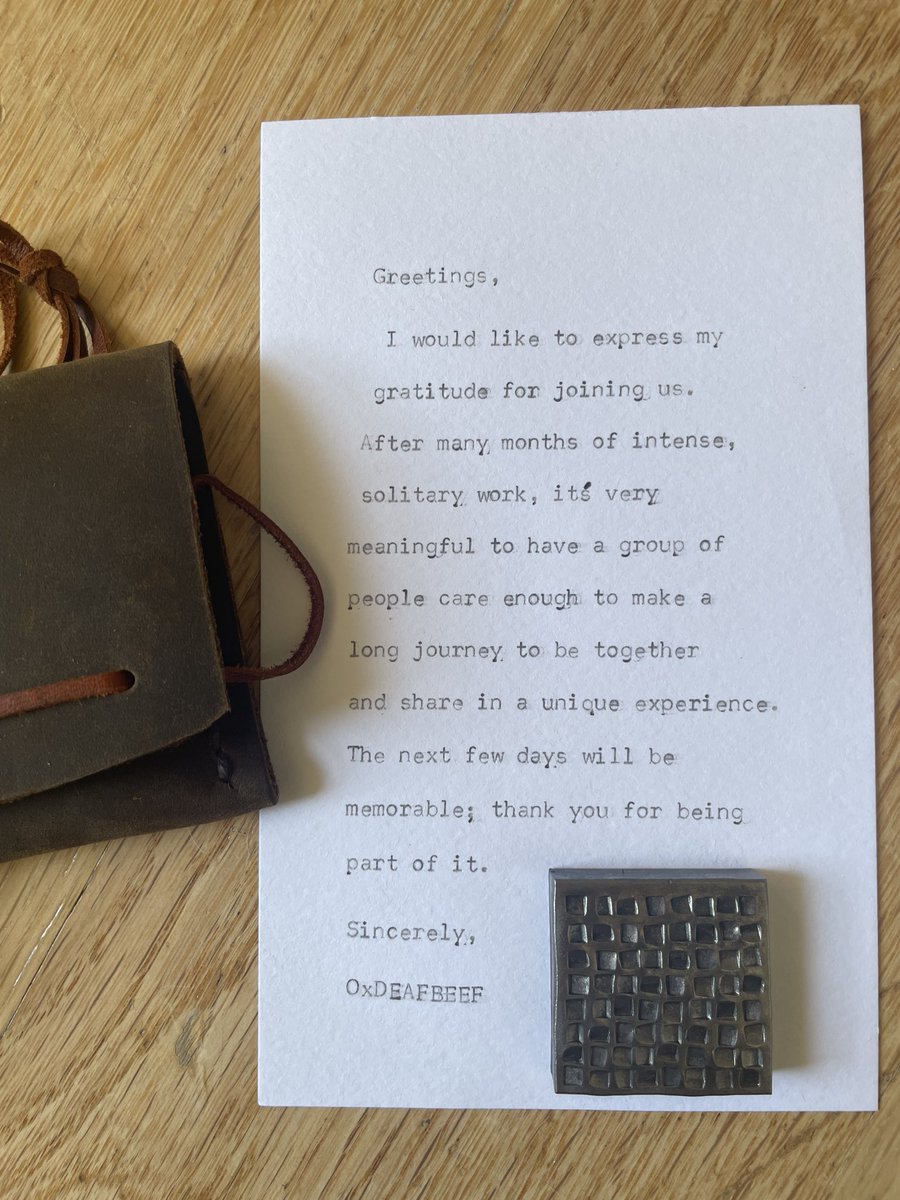 Greetings,
I would like to express my
gratitude for joining us.
After many months of intense,
solitary work, it's very
meaningful to have a group of
people care enough to make a
long journey to be together
and share in a unique experience.
The next few days will be
memorable; thank you for being
part of it.
Sincerely,
OxDEAFBEEF